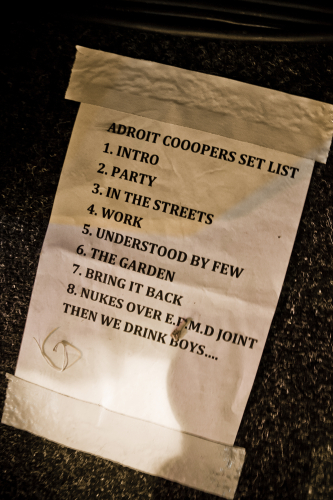 ADROIT COOOPERS SET LIST
1. INTRO
2. PARTY
3. IN THE STREETS
4. WORK
5. UNDERSTOOD BY FEW
6. THE GARDEN
7. BRING IT BACK
8. NUKES OVER E.P.M.D JOINT
THEN WE DRINK BOYS....